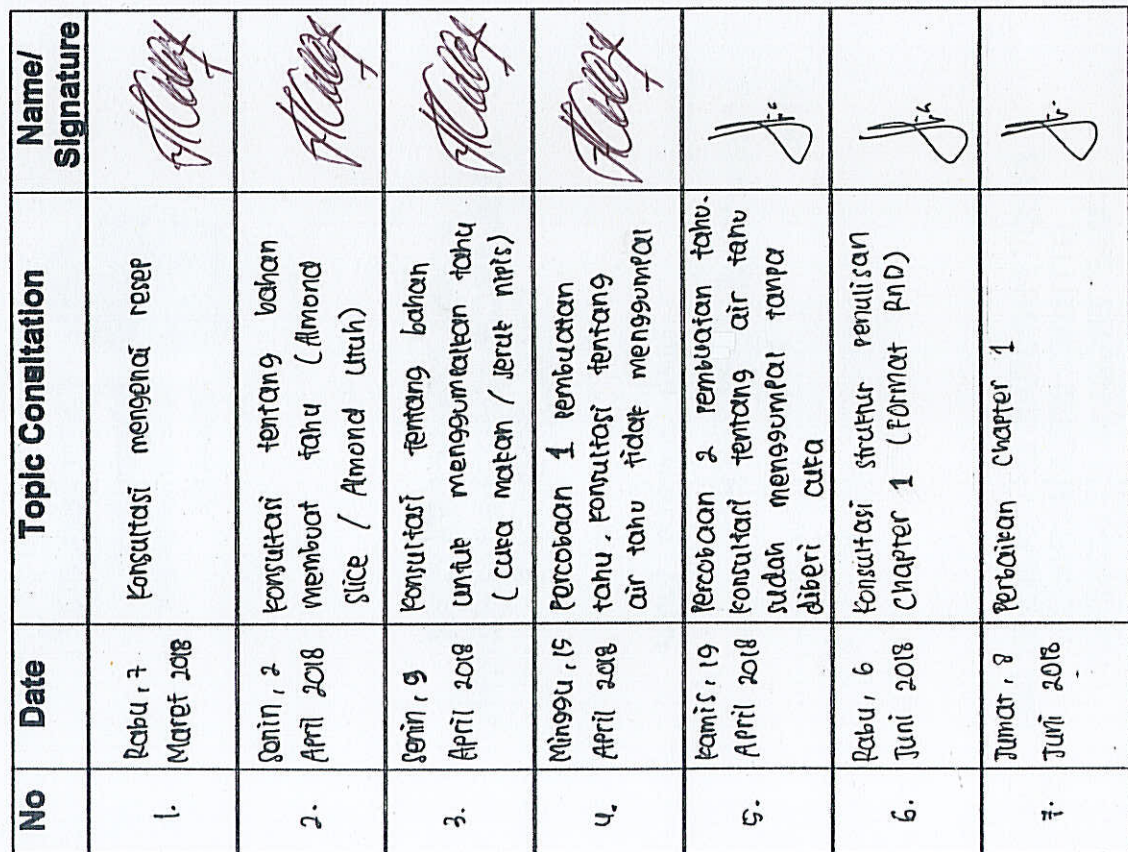 No
Date
Topic Consltation
Name/
Signature
1.
Rabu, 7
Maret 2018
Konsultasi mengenai resep
2.
Senin, 2
April 2018
Konsultasi tentang bahan
membuat tahu (Almond
Slice / Almond Utuh)
3.
Senin, 9
April 2018
Konsultasi tentang bahan
untuk menggumpalkan tahu
(cuka makan / jeruk nipis)
4.
Minggu, 15
April 2018
Percobaan 1 pembuatan
tahu. Konsultasi tentang
air tahu tidak menggumpal
5.
Kamis, 19
April 2018
Percobaan 2 pembuatan tahu.
Konsultasi tentang air tahu
sudah menggumpal tanpa
diberi cuka
6.
Rabu, 6
Juni 2018
Konsultasi struktur penulisan
Chapter 1 (Format RnD)
7.
Jumat, 8
Juni 2018
Perbaikan Chapter 1